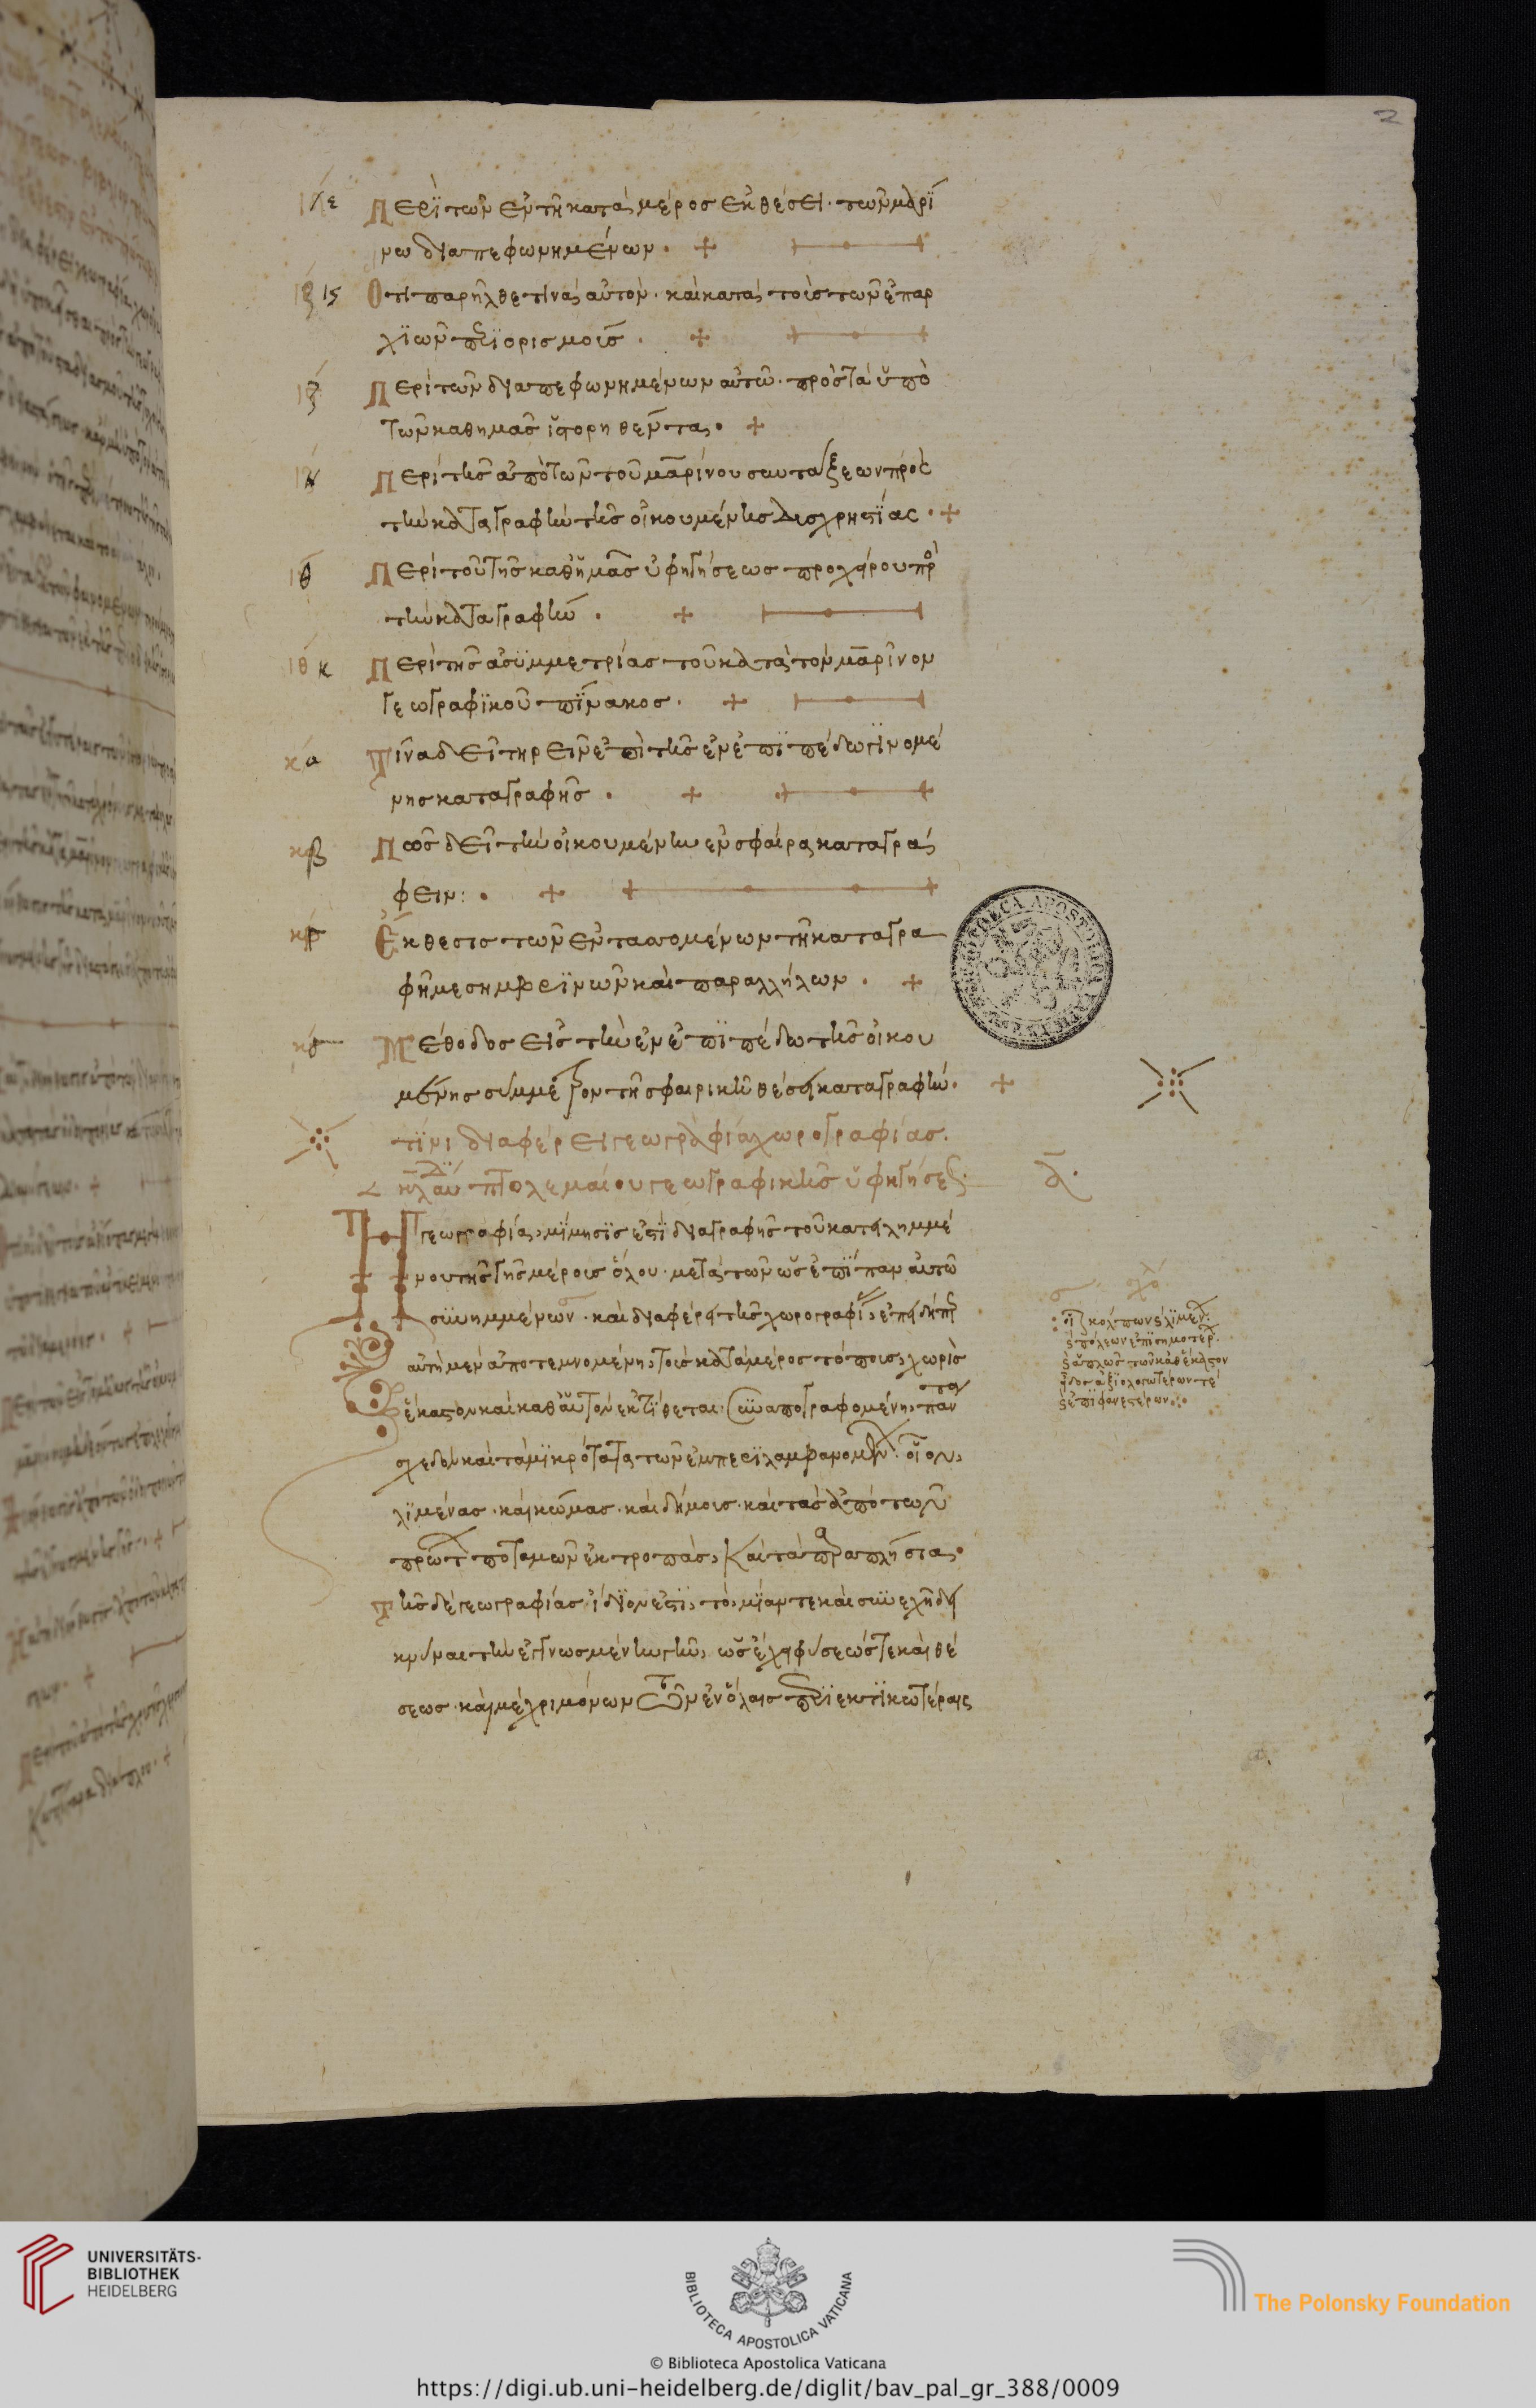 2
ιε Περὶ τῶν ἐν τῇ κατὰ μέρος ἐκθέσει τῶν μαρί
νω διαπεφωνημένων.
ις Ὅτι παρῆλθε τινὰ αὐτὸν. καὶ κατὰ τοὺς τῶν ἐπαρ
χιῶν περιορισμοὺς.
ιζ Περὶ τῶν διαπεφωνημένων αὐτῶ. πρὸς τὰ ὑπὸ
τῶν καθ ημᾶς ἱστορηθέντα.
ιη Περὶ τῆς ἀπὸ τῶν τοῦ μαρίνου συντάξεων πρὸς
τὴν καταγραφὴν τῆς οἰκουμένης δυσχρηστίας.
ιθ Περὶ τοῦ τῆς καθ ἡμᾶς ὑφηγήσεως προχείρου πρὸ
τὴν καταγραφὴν.
κ Περὶ τῆς ἀσυμμετρίας τοῦ κατὰ τὸν μαρῖνον
γεωγραφϊκοῦ πίνακος.
κα Τίνα δεῖ τηρεῖν ἐπὶ τῆς ἐν ἐπιπέδω γινομέ
νης καταγραφῆς.
κβ Πῶς δεῖ τὴν οἰκουμένην ἐν σφαίρα καταγρά
φειν:.
κγ Ἔκθεσις τῶν ἐντασσομένων τῇ καταγρα
φῆ μεσημβρινῶν καὶ παραλλήλων.
κδ Μέθοδος εἰς τὴν ἐν ἐπιπέδω τῆς οἰκου
μένης σύμμετρον τῇ σφαιρικῇ θέσει καταγραφὴν.
τίνι διαφέρει γεωγραφία χωρογραφίας.
κλαυδι πτολεμαίου γεωγραφικῆς ὑφηγήσε α.
Η γεωγραφία, μίμησις ἐστὶ διαγραφῆς τοῦ κατειλημμέ
νου τῆς γῆς μέρους ὅλου. μετὰ τῶν ὡς ἐπίπαν αὐτῶ
συνημμένων. καὶ διαφέρει τῆς χωρογραφίας, ἐπειδήπερ
αὕτη μεν ἀποτεμνομένη, τοὺς κατὰ μέρος τόπους, χωρὶς
ἕκαστον καὶ καθ αὑτὸν ἐκτίθεται. συναπογραφομένη, πάντα
σχεδὸν καὶ τὰ μικρότατα τῶν ἐμπεριλαμβανομένων. οἷον,
λιμένας. καὶ κώμας. καὶ δήμους. καὶ τὰς ἀπὸ τῶν
πρώτων ποταμῶν ἐκτροπὰς, καὶ τὰ παραπλήσια.
Τῆς δὲ γεωγραφίας ἴδιόν ἐστι, τὸ, μίαν τε καὶ συνεχῆ δει
κνύναι τὴν ἐγνωσμένην γῆν, ὡς ἔχει φύσεώς τε καὶ θέ
σεως. καὶ μέχρι μόνων τῶν ἐν ὅλαις περιεκτικωτέραις
σχό
κόλπων λιμεν.
πόλεων ἐπισημοτέρ.
ἁπλῶς τῶν καθ ἕκαστον
εἶδος ἀξιολογωτέρων τέ
ἐπιφανεστέρων:.
UNIVERSITÄTS-
BIBLIOTHEK
HEIDELBERG
BIBLIOTECA APOSTOLICA VATICANA
The Polonsky Foundation
© Biblioteca Apostolica Vaticana
https://digi.ub.uni-heidelberg.de/diglit/bav_pal_gr_388/0009